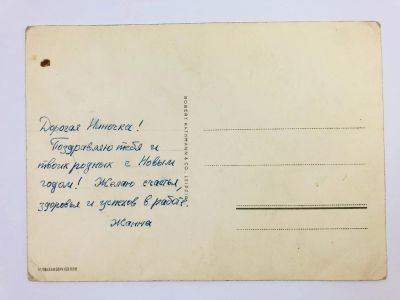 Дорогая Ниночка!
Поздравляю тебя и
твоих родных с Новым
годом! Желаю счастья,
здоровья и успехов в работе.
Жанна
ROBERT RATHMANN & CO., LEIPZIG